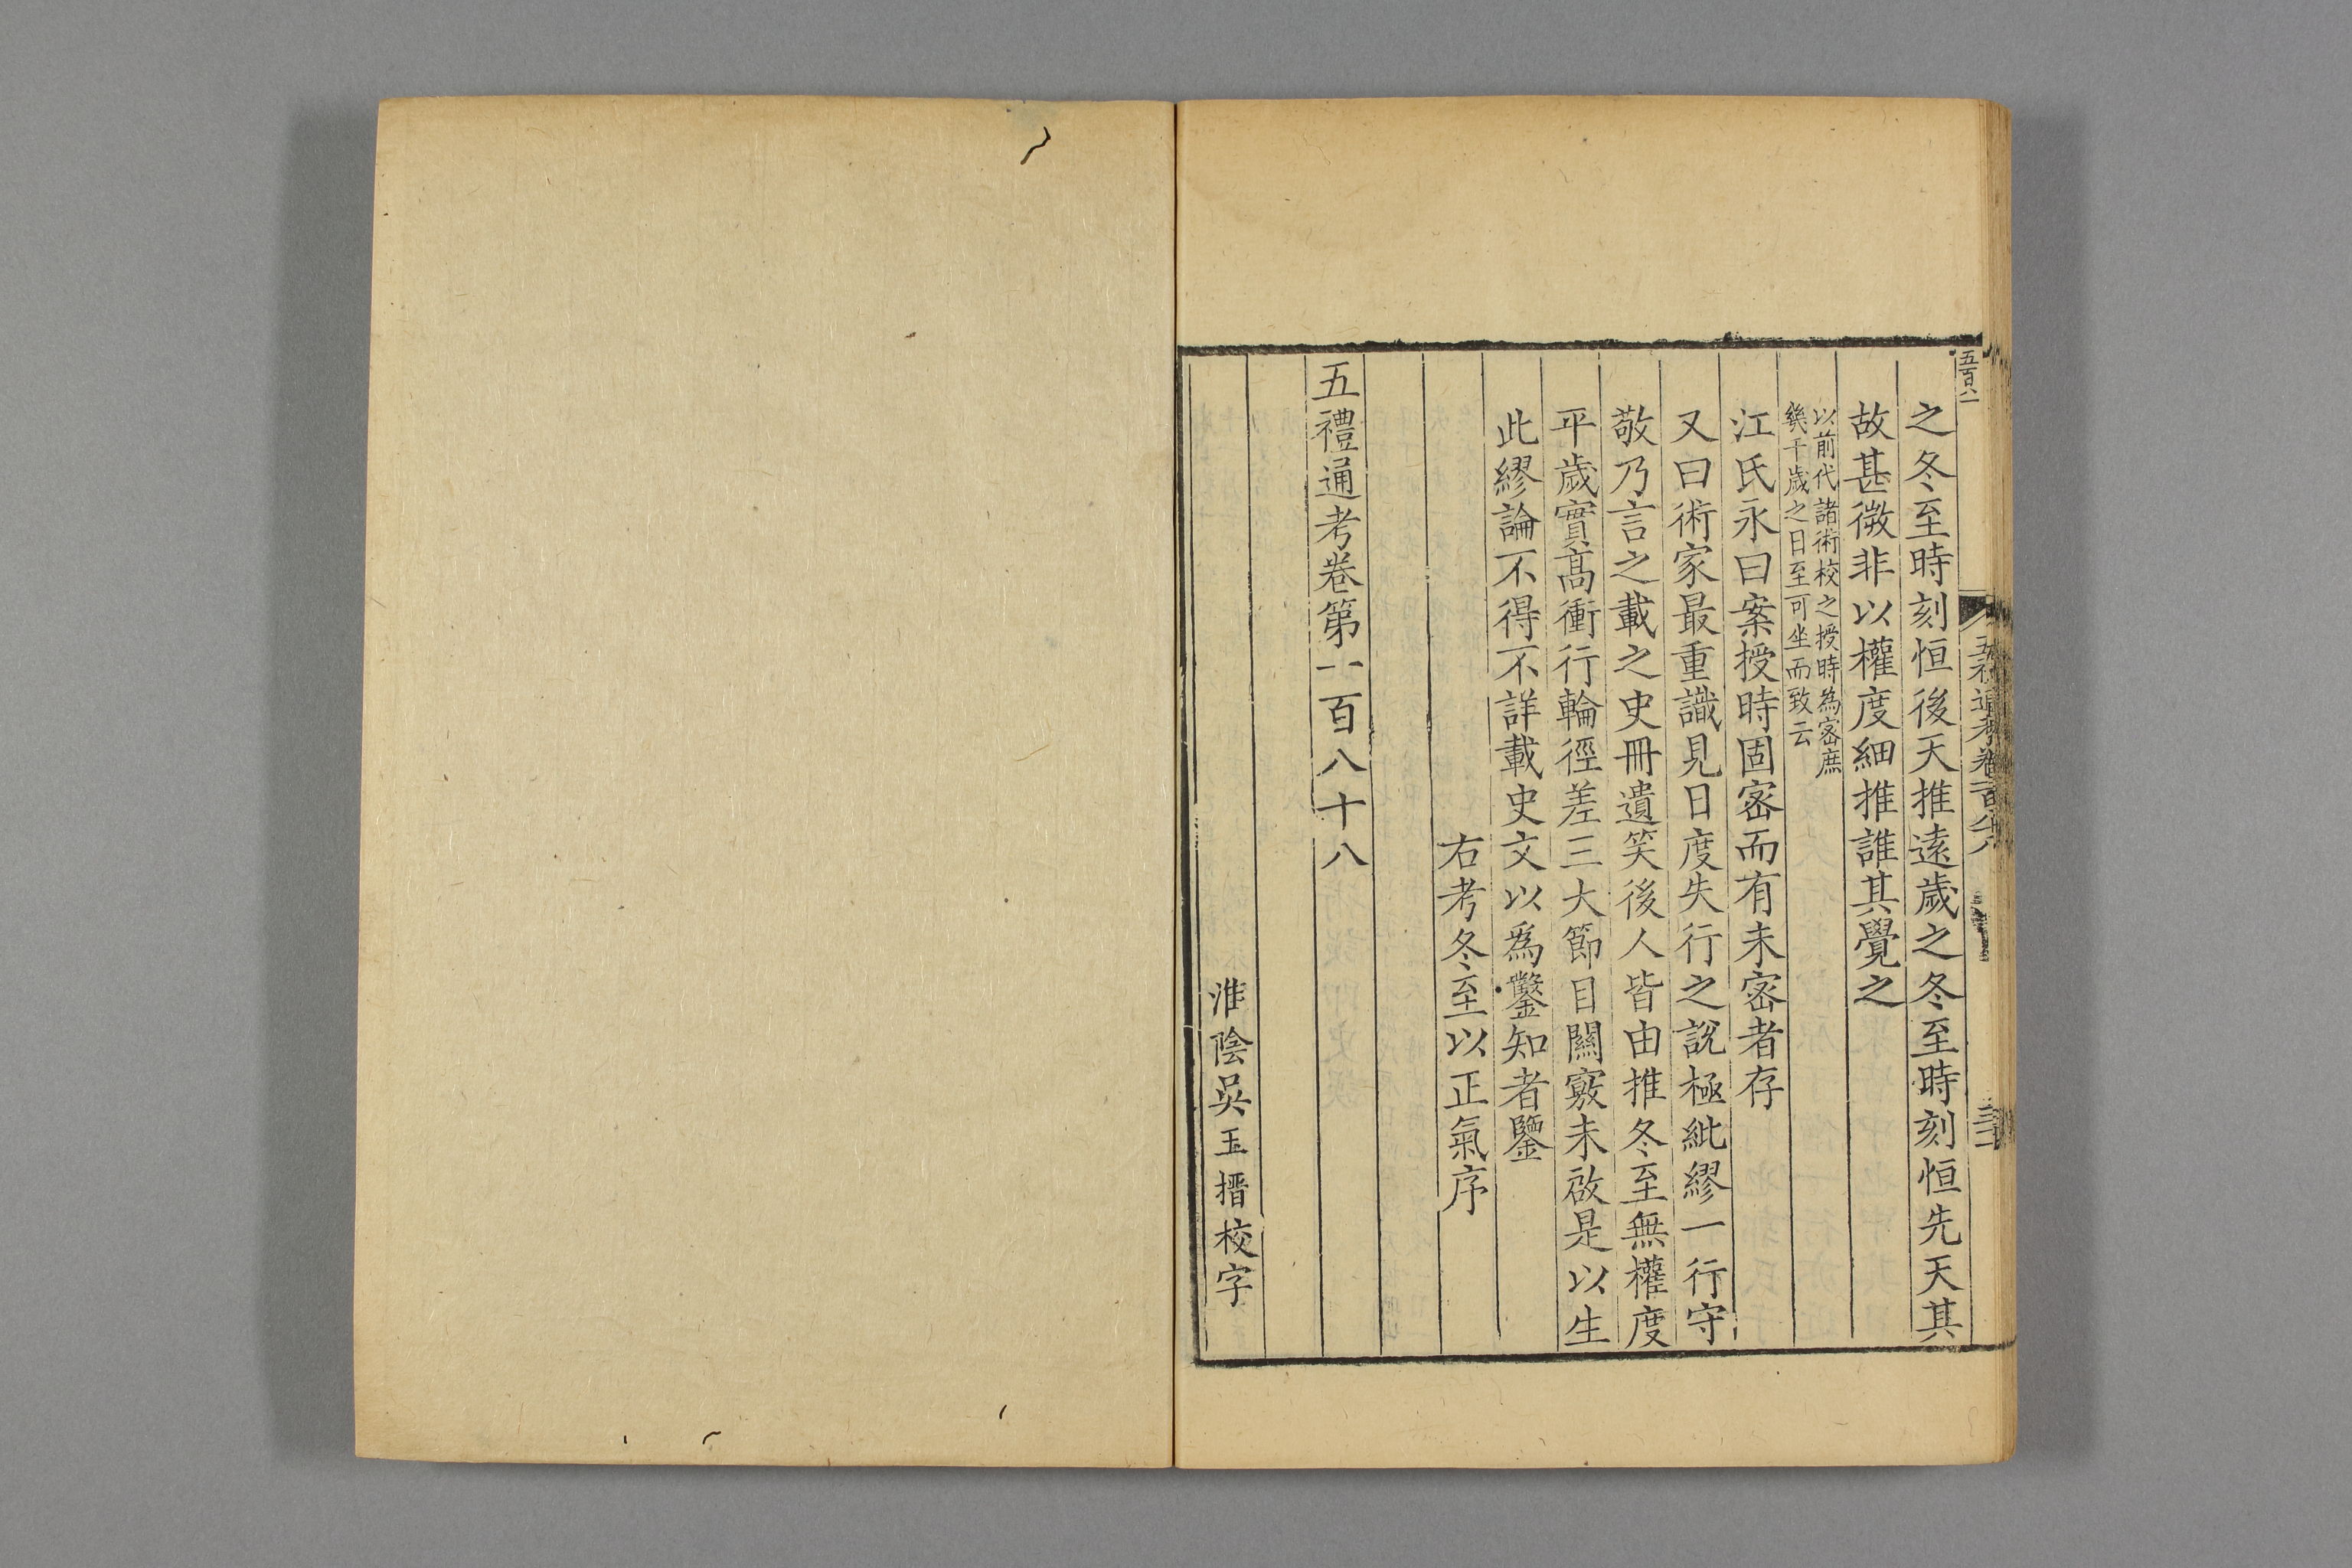 五百八
之冬至時刻恒後天推遠歲之冬至時刻恒先天其
故甚微非以權度細推誰其覺之
以前代諸術校之授時為密庶
幾千歲之日至可坐而致云
江氏永曰案授時固密而有未密者存
又曰術家最重識見日度失行之說極紕繆一行守
敬乃言之載之史冊遺笑後人皆由推冬至無權度
平歲實髙衝行輪徑差三大節目關竅未啟是以生
此繆論不得不詳載史文以爲鑿知者鑒
右考冬至以正氣序
五禮通考卷第一百八十八
淮陰吳玉搢校字